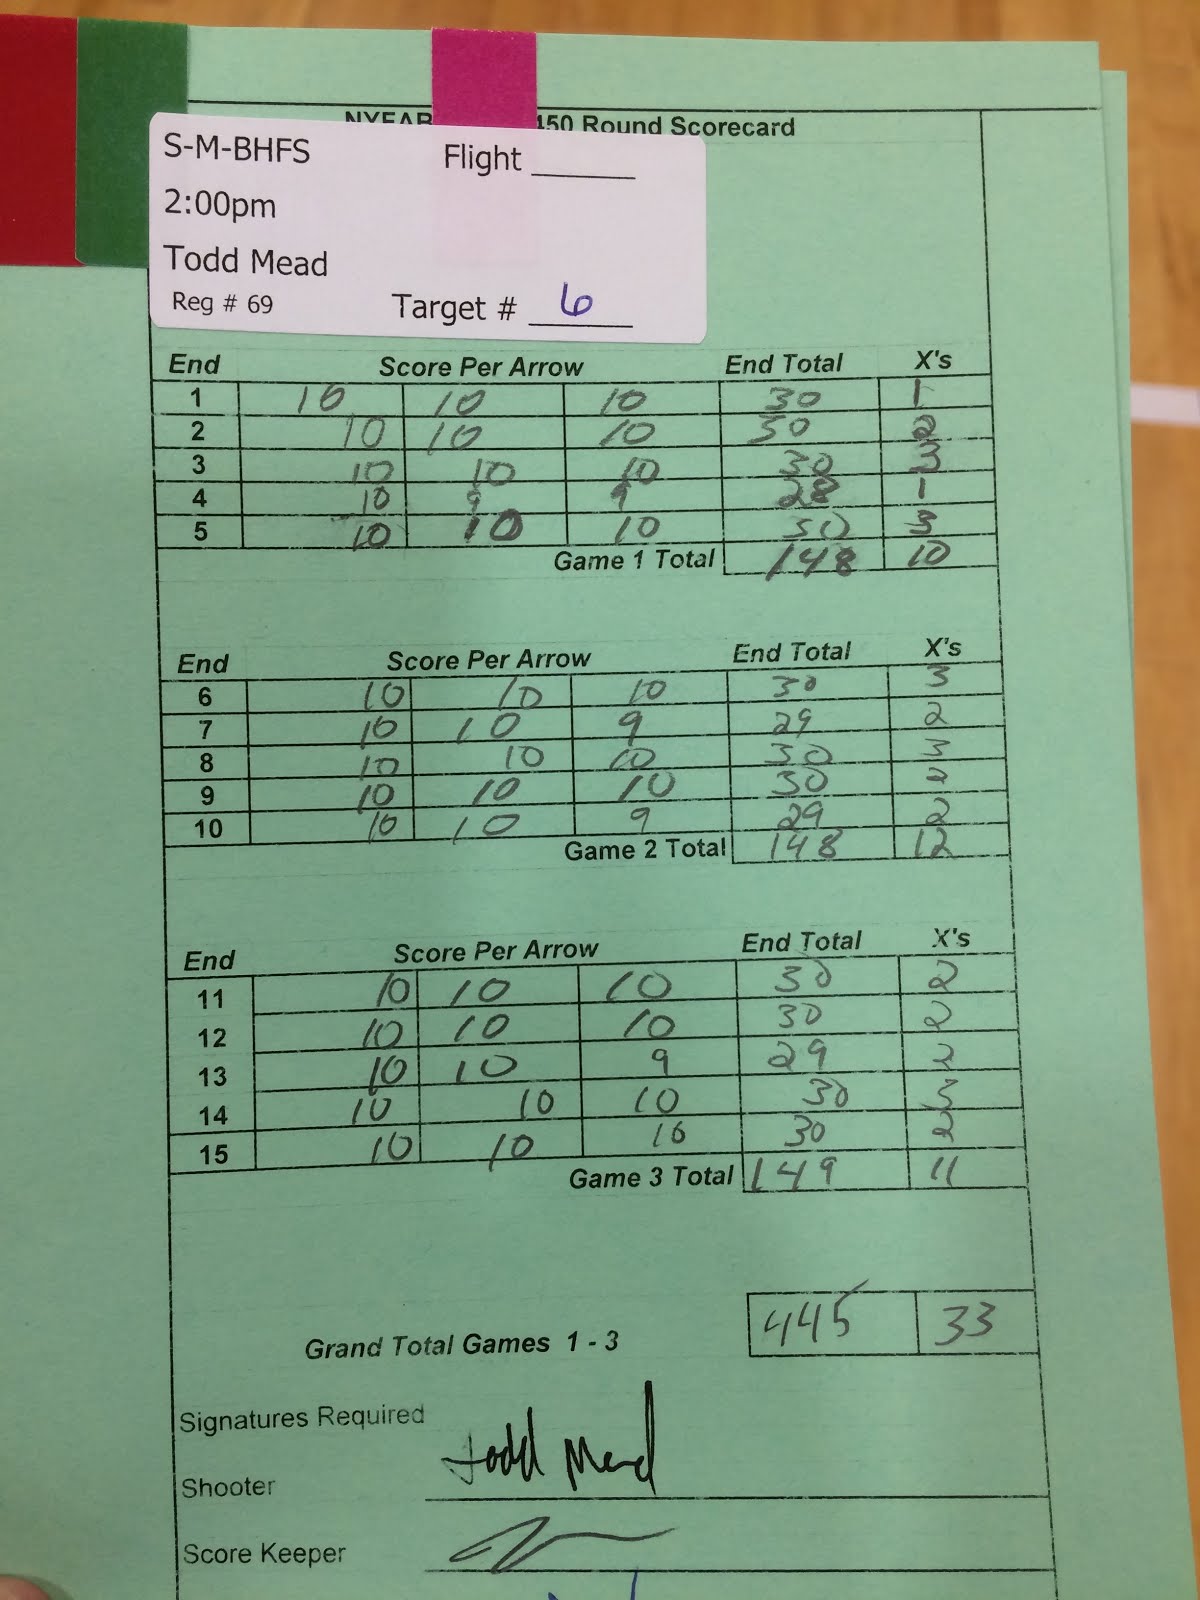 NYFAB 450 Round Scorecard
S-M-BHFS Flight ______
2:00pm
Todd Mead
Reg # 69 Target # 6
End Score Per Arrow End Total X's
1 10 10 10 30 1
2 10 10 10 30 2
3 10 10 10 30 3
4 10 9 9 28 1
5 10 10 10 30 3
Game 1 Total 148 10
End Score Per Arrow End Total X's
6 10 10 10 30 3
7 10 10 9 29 2
8 10 10 10 30 3
9 10 10 10 30 2
10 10 10 9 29 2
Game 2 Total 148 12
End Score Per Arrow End Total X's
11 10 10 10 30 2
12 10 10 10 30 2
13 10 10 9 29 2
14 10 10 10 30 3
15 10 10 10 30 2
Game 3 Total 149 11
Grand Total Games 1 - 3 445 33
Signatures Required
Shooter Todd Mead
Score Keeper